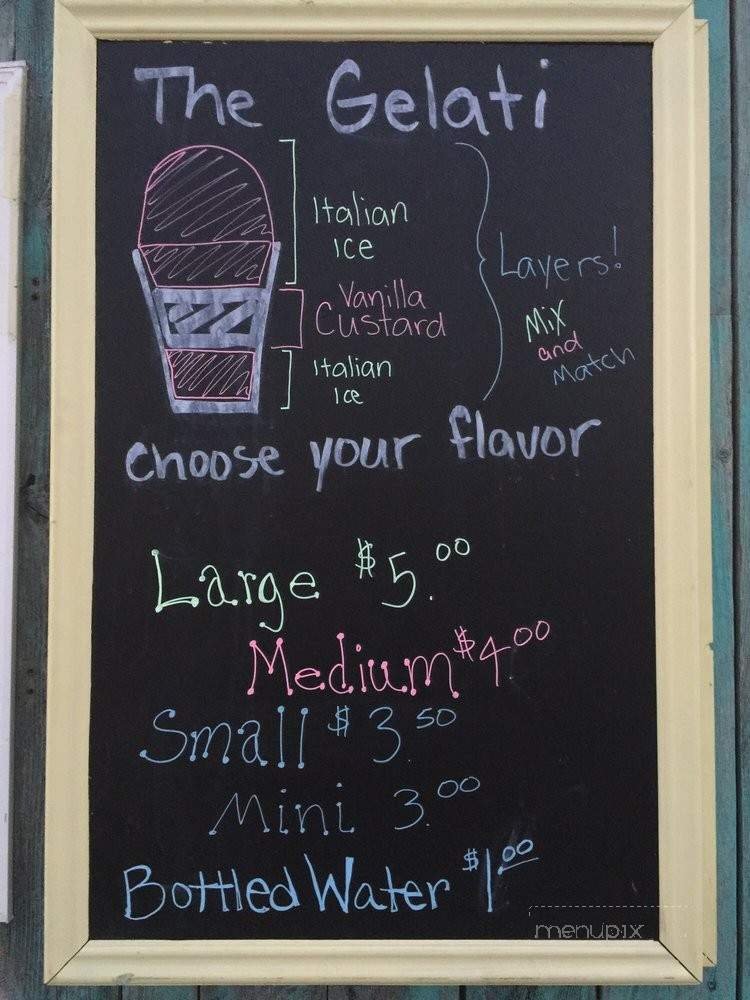 The Gelati
Italian
Ice
Vanilla
Custard
Italian
Ice
Layers!
Mix
and
Match
choose your flavor
Large $5.00
Medium $4.00
Small $3.50
Mini 3.00
Bottled Water $1.00
menupix